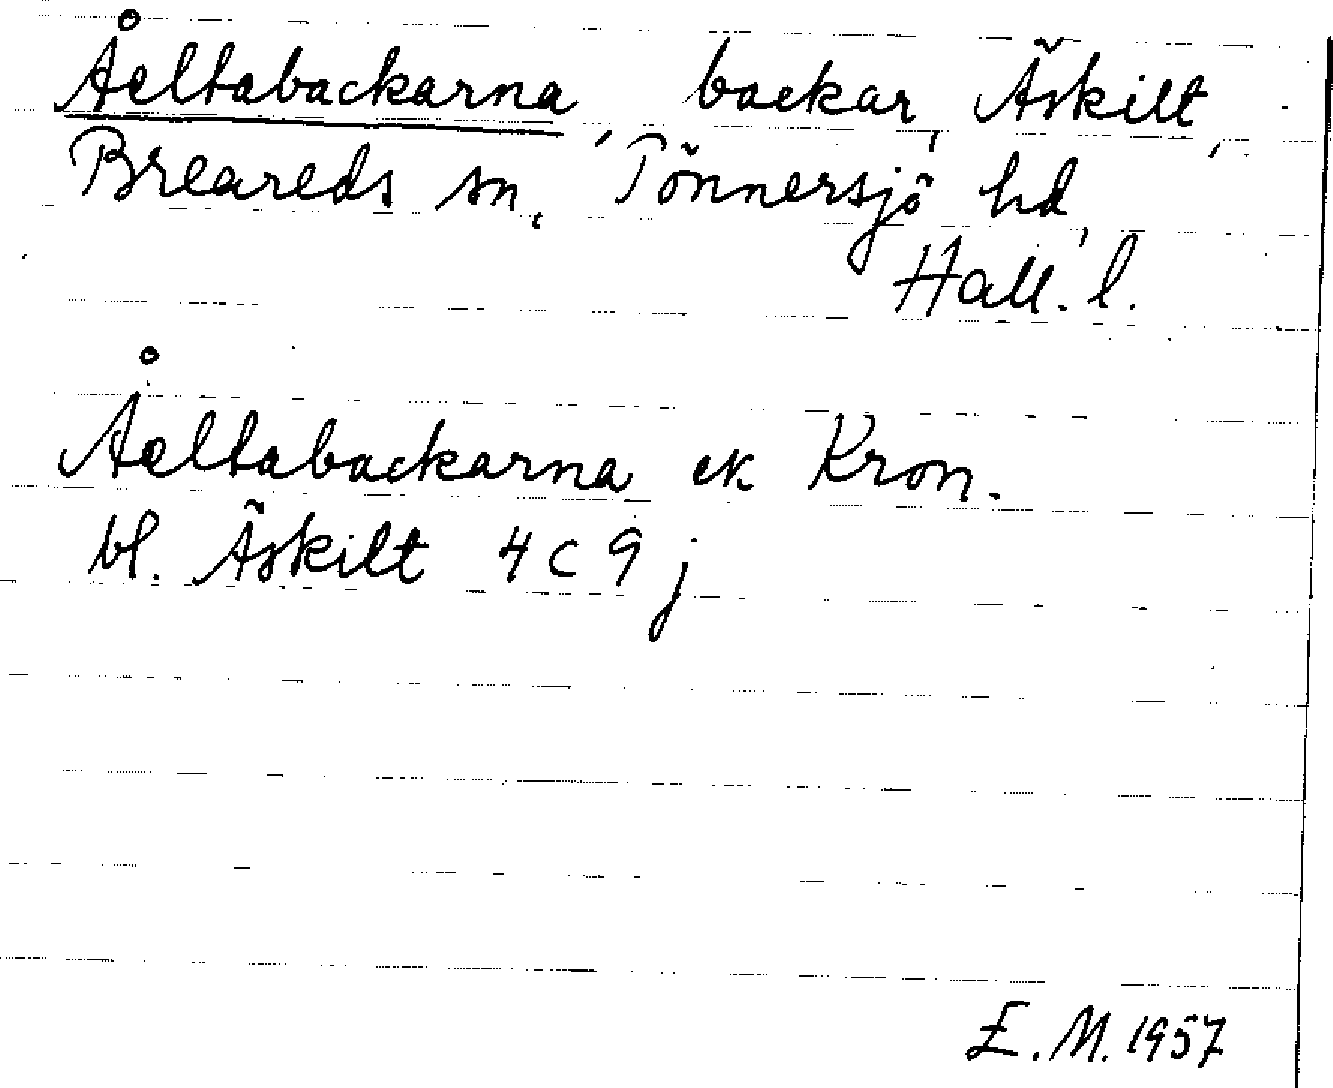 Åeltabackarna, backar, Äskilt,
Breareds sn, Tönnersjö hd,
Hall. l.
Åeltabackarna ek Kron.
bl. Äskilt 4 C 9 j
E. M. 1957